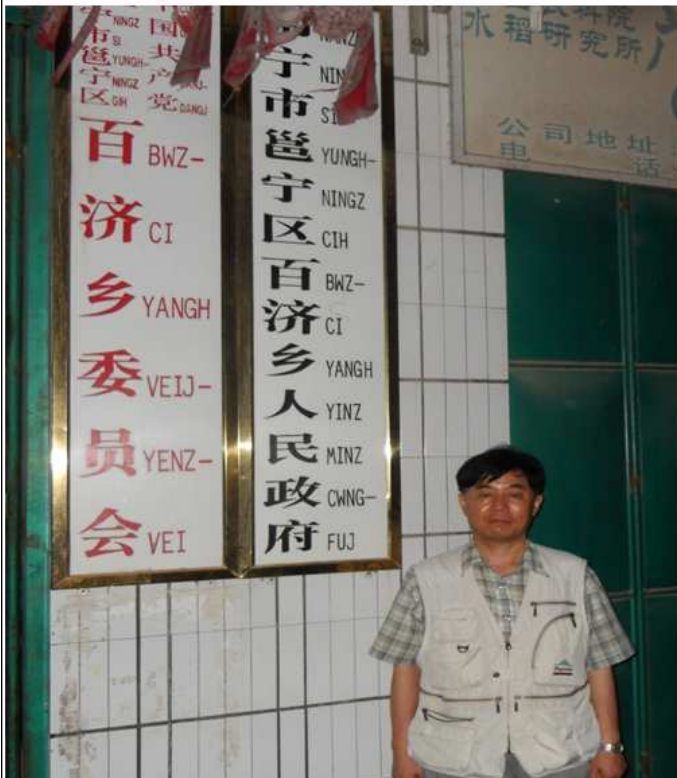 NINGZ
市 SI
邕 YUNGH-
宁 NINGZ
区 GIH
国
共
产
党 DANGJ
百 BWZ-
济 CI
乡 YANGH
委 VEIJ-
员 YENZ-
会 VEI
宁
市
邕 YUNGH-
宁 NINGZ
区 CIH
百 BWZ-
济 CI
乡 YANGH
人 YINZ
民 MINZ
政 CWNG-
府 FUJ
科院
水稻研究所
公司地址
电 话